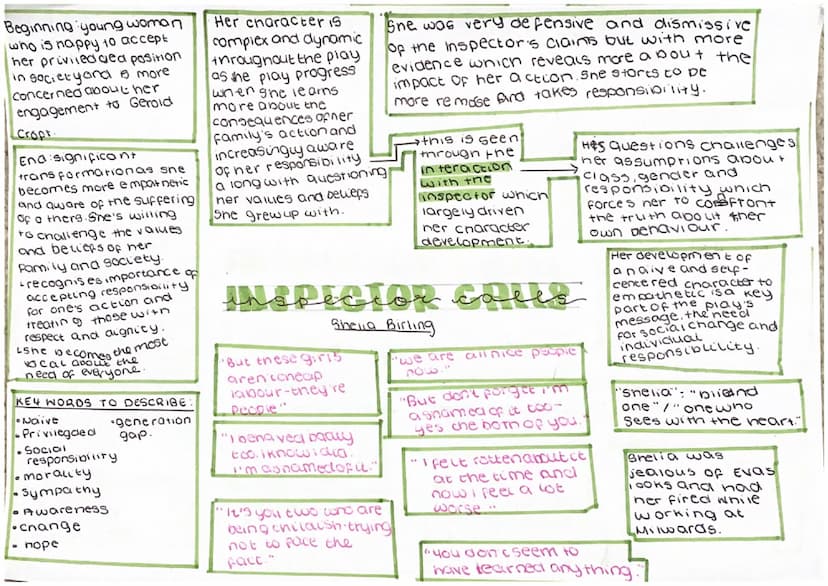 Beginning: young woman
who is happy to accept
her priviledged position
in society and is more
concerned about her
engagement to Gerald
Croft.
End: significant
transformation as she
becomes more empathetic
and aware of the suffering
of others. She's willing
to challenge the values
and beliefs of her
family and society.
recognises importance of
accepting responsibility
for one's action and
treating those with
respect and dignity.
she becomes the most
vocal about the
need of everyone.
KEY WORDS TO DESCRIBE:
• Naive
• Priviledged
• Social
responsibility
• morality
• Sympathy
• Awareness
• change
• hope
• generation
gap.
Her character is
complex and dynamic
throughout the play
as the play progress
when she learns
more about the
consequences of her
family's action and
increasingly aware
of her responsibility
along with questioning
her values and beliefs
she grew up with.
She was very defensive and dismissive
of the Inspector's claims but with more
evidence which reveals more about the
impact of her action. She starts to be
more remose and takes responsibility.
this is seen
through the
interaction
with the
inspector which
largely driven
her character
development.
His questions challenges
her assumptions about
class, gender and
responsibility which
forces her to confront
the truth about ther
own behaviour.
INSPECTOR CALLS
Shelia Birling
Her development of
a naive and self-
centered character to
empathetic is a key
part of the play's
message, the need
for social change and
individual
responsibility.
"But these girls
aren't cheap
labour-they're
people"
"We are all nice people
now."
"But don't forget i'm
ashamed of it too-
yes the both of you."
"I behaved badly
too. I know i did.
I'm ashamed of it."
"I felt rotten about it
at the time and
now I feel a lot
worse."
"It's you two who are
being childish-trying
not to face the
fact."
"You don't seem to
have learned anything."
"Shelia": "blind
one"/"one who
sees with the heart."
Shelia was
jealous of Evas
looks and had
her fired while
working at
Milwards.